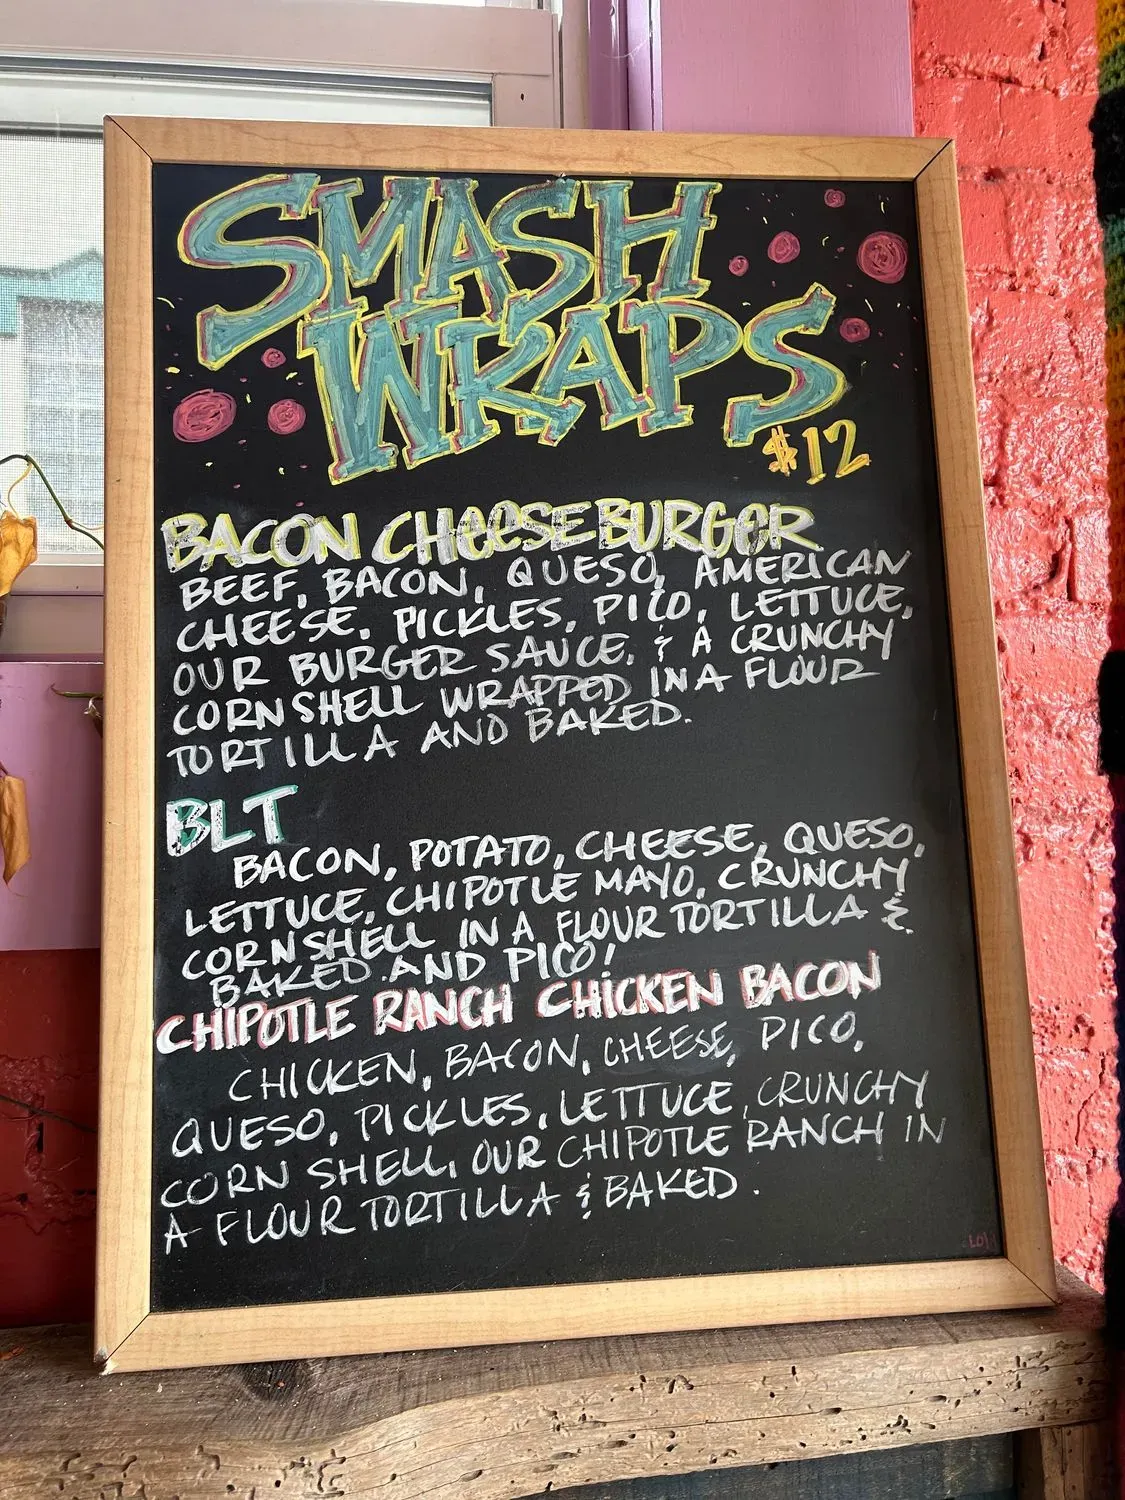 SMASH
WRAPS
$12
BACON CHEESEBURGER
BEEF, BACON, QUESO, AMERICAN
CHEESE, PICKLES, PICO, LETTUCE,
OUR BURGER SAUCE, & A CRUNCHY
CORN SHELL WRAPPED IN A FLOUR
TORTILLA AND BAKED.
BLT
BACON, POTATO, CHEESE, QUESO,
LETTUCE, CHIPOTLE MAYO, CRUNCHY
CORN SHELL IN A FLOUR TORTILLA &
BAKED. AND PICO!
CHIPOTLE RANCH CHICKEN BACON
CHICKEN, BACON, CHEESE, PICO,
QUESO, PICKLES, LETTUCE, CRUNCHY
CORN SHELL, OUR CHIPOTLE RANCH IN
A FLOUR TORTILLA & BAKED.